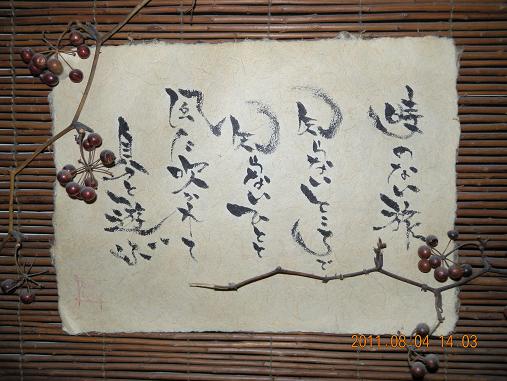 時のない旅
知らないところで
知らないひとと
風に吹かれて
鳥と遊ぶ
2011.08.04 14:03